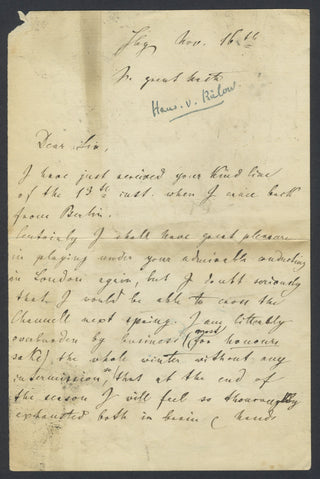 Hbg Nov. 16th
In great haste
Hans. v. Bülow.
Dear Sir,
I have just received your kind line
of the 13th inst. when I came back
from Berlin.
Certainly I shall have great pleasure
in playing under your admirable conducting
in London again, but I doubt seriously
that I would be able to cross the
Channell next spring. I am litterally
overburden by business (most for honours
sake), the whole winter without any
intermission, that at the end of
the season I will feel so thouroughly
exhausted both in brain & hands